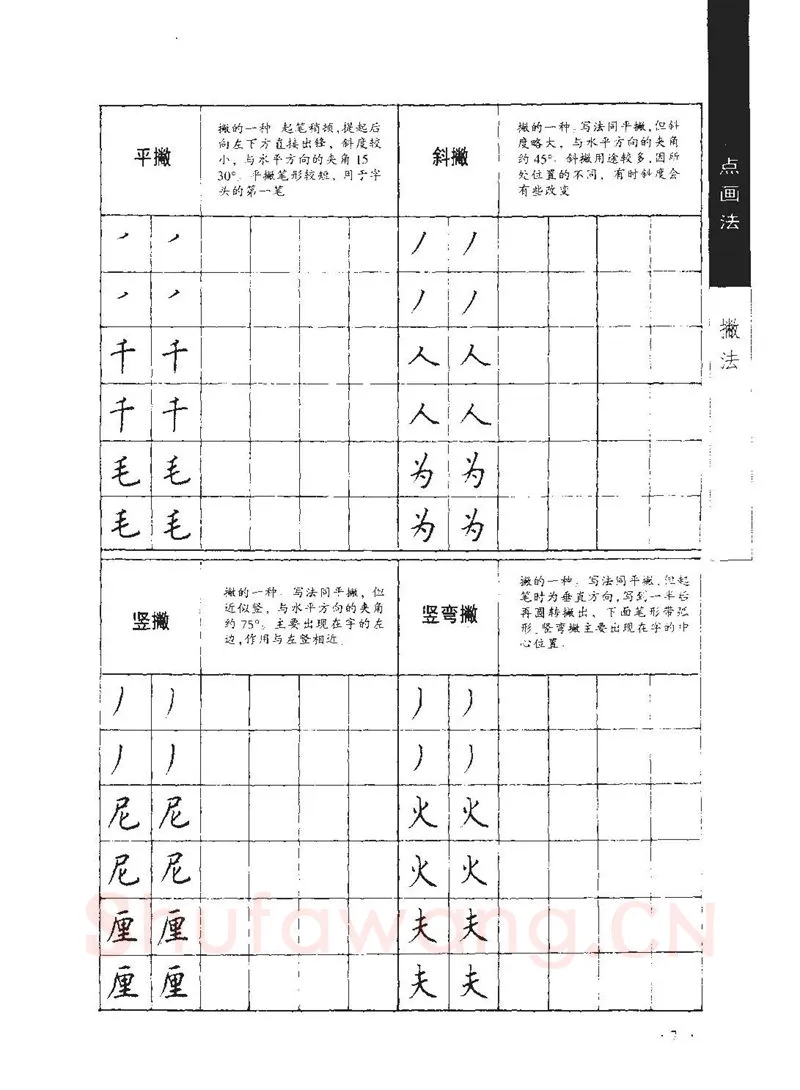 平撇
撇的一种 起笔稍顿,提起后
向左下方直接出锋,斜度较
小,与水平方向的夹角 15
30°。平撇笔形较短,用于字
头的第一笔
斜撇
撇的一种。写法同平撇,但斜
度略大,与水平方向的夹角
约 45°。斜撇用途较多,因所
处位置的不同,有时斜度会
有些改变
点画法
撇法
㇒ ㇒
㇒ ㇒
千 千
千 千
毛 毛
毛 毛
丿 丿
丿 丿
人 人
人 人
为 为
为 为
竖撇
撇的一种。写法同平撇,但
近似竖,与水平方向的夹角
约 75°。主要出现在字的左
边,作用与左竖相近。
竖弯撇
撇的一种。写法同平撇,但起
笔时为垂直方向,写到一半后
再圆转撇出、下面笔形带弧
形。竖弯撇主要出现在字的中
心位置.
丿 丿
丿 丿
尼 尼
尼 尼
厘 厘
厘 厘
丿 丿
丿 丿
火 火
火 火
夫 夫
夫 夫
Shufawang.CN
· 7 ·